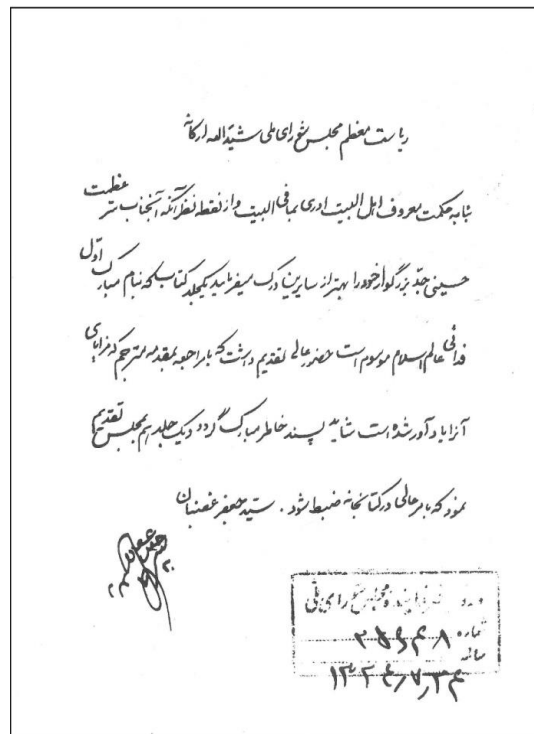 ریاست معظم مجلس شورای ملی شیدالله ارکانه
بنا به حکمت معروف اهل البیت ادری بما فی البیت و از نقطه نظر آنکه آنجناب عظمت
حسینی جد بزرگوار خود را بهتر از سایرین درک میفرمایید یکجلد کتاب که بنام مبارک اول
فدائی عالم اسلام موسوم است حضور عالی تقدیم داشت که با مراجعه بمقدمه مترجم که مزایای
آنرا یادآور شده است شاید پسند خاطر مبارک گردد و یک جلد هم بمجلس تقدیم
نمود که بامر عالی در کتابخانه ضبط شود. سید جعفر غضبان
ورود دفتر مجلس شورای ملی
شماره ۲۵۶۴۸
۱۳۲۴/۷/۲۴